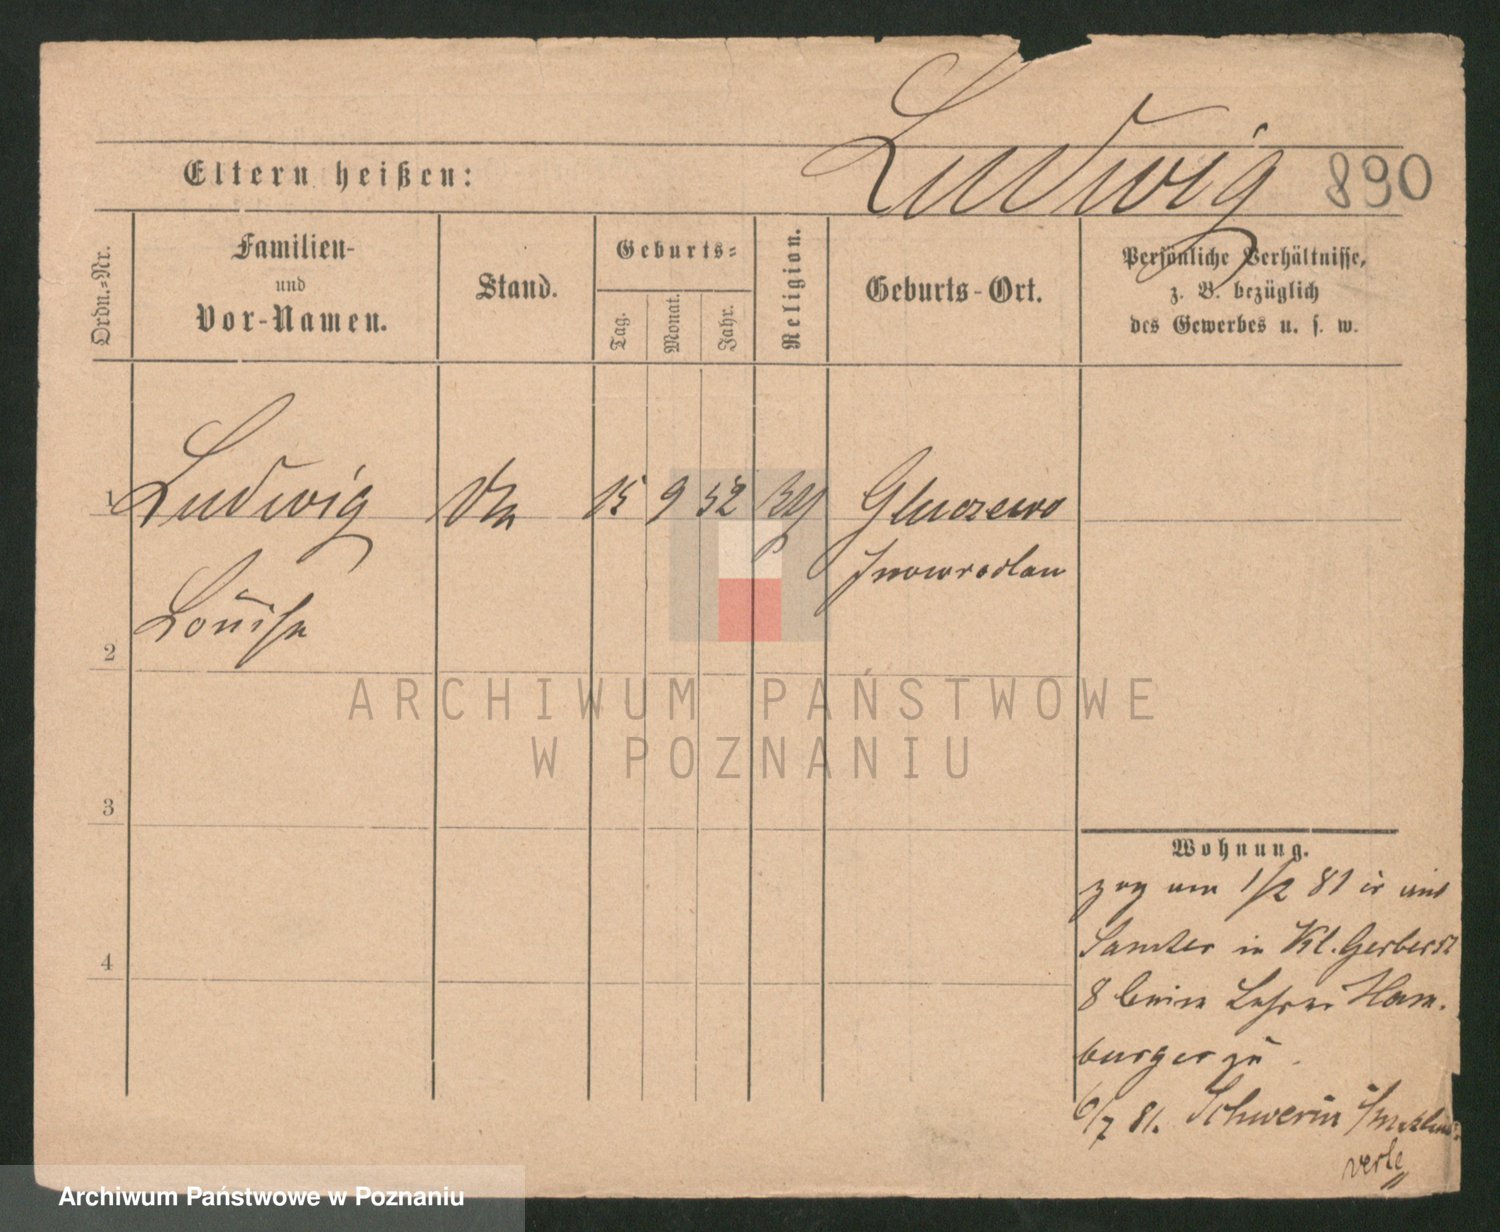 Ludwig 890
Eltern heißen:
Ordn.=Nr.
Familien-
und
Vor-Namen.
Stand.
Geburts=
Tag.
Monat.
Jahr.
Religion.
Geburts-Ort.
Persönliche Verhältnisse,
z. B. bezüglich
des Gewerbes u. s. w.
1 Ludwig 15 9 52 Gluczewo
Inowraclaw
Louise
2
3
4
Wohnung.
zog am 1/2 81 aus
Samter in Kl. Gerberst
8 beim Lehrer Ham-
burger zu.
6/7 81. Schwerin
ARCHIWUM PAŃSTWOWE
W POZNANIU
Archiwum Państwowe w Poznaniu